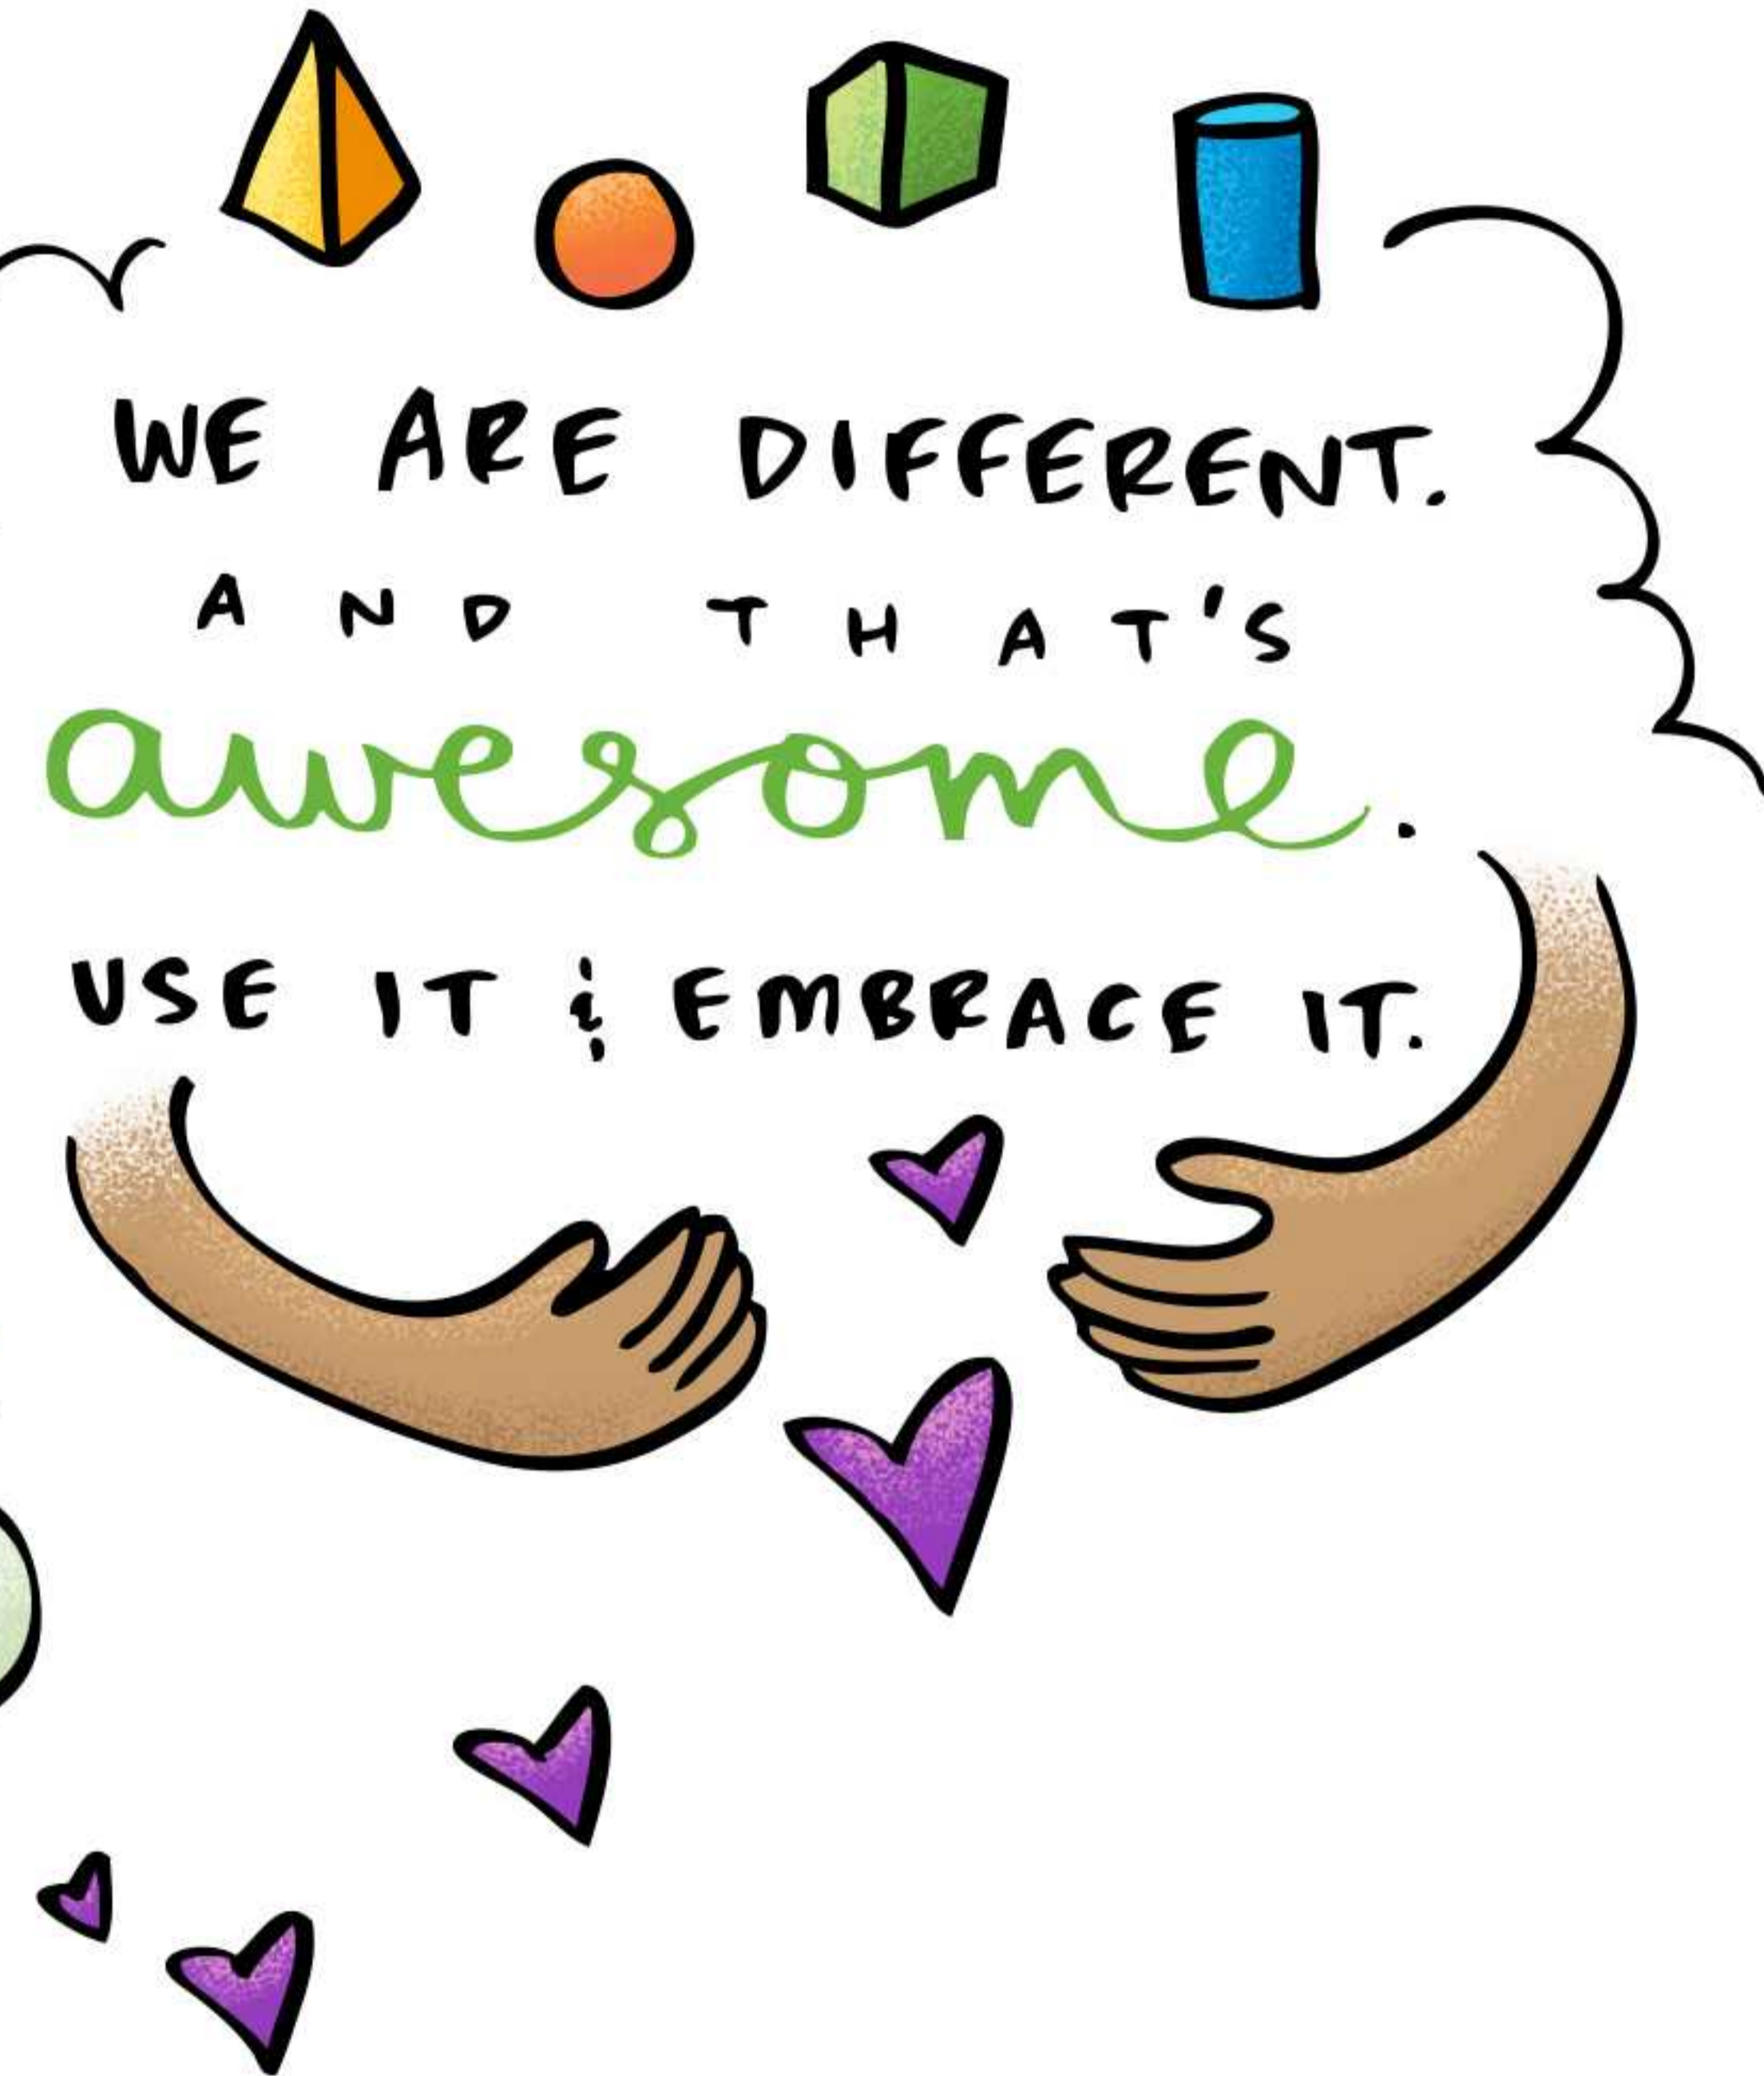 WE ARE DIFFERENT.
AND THAT'S
awesome.
USE IT & EMBRACE IT.